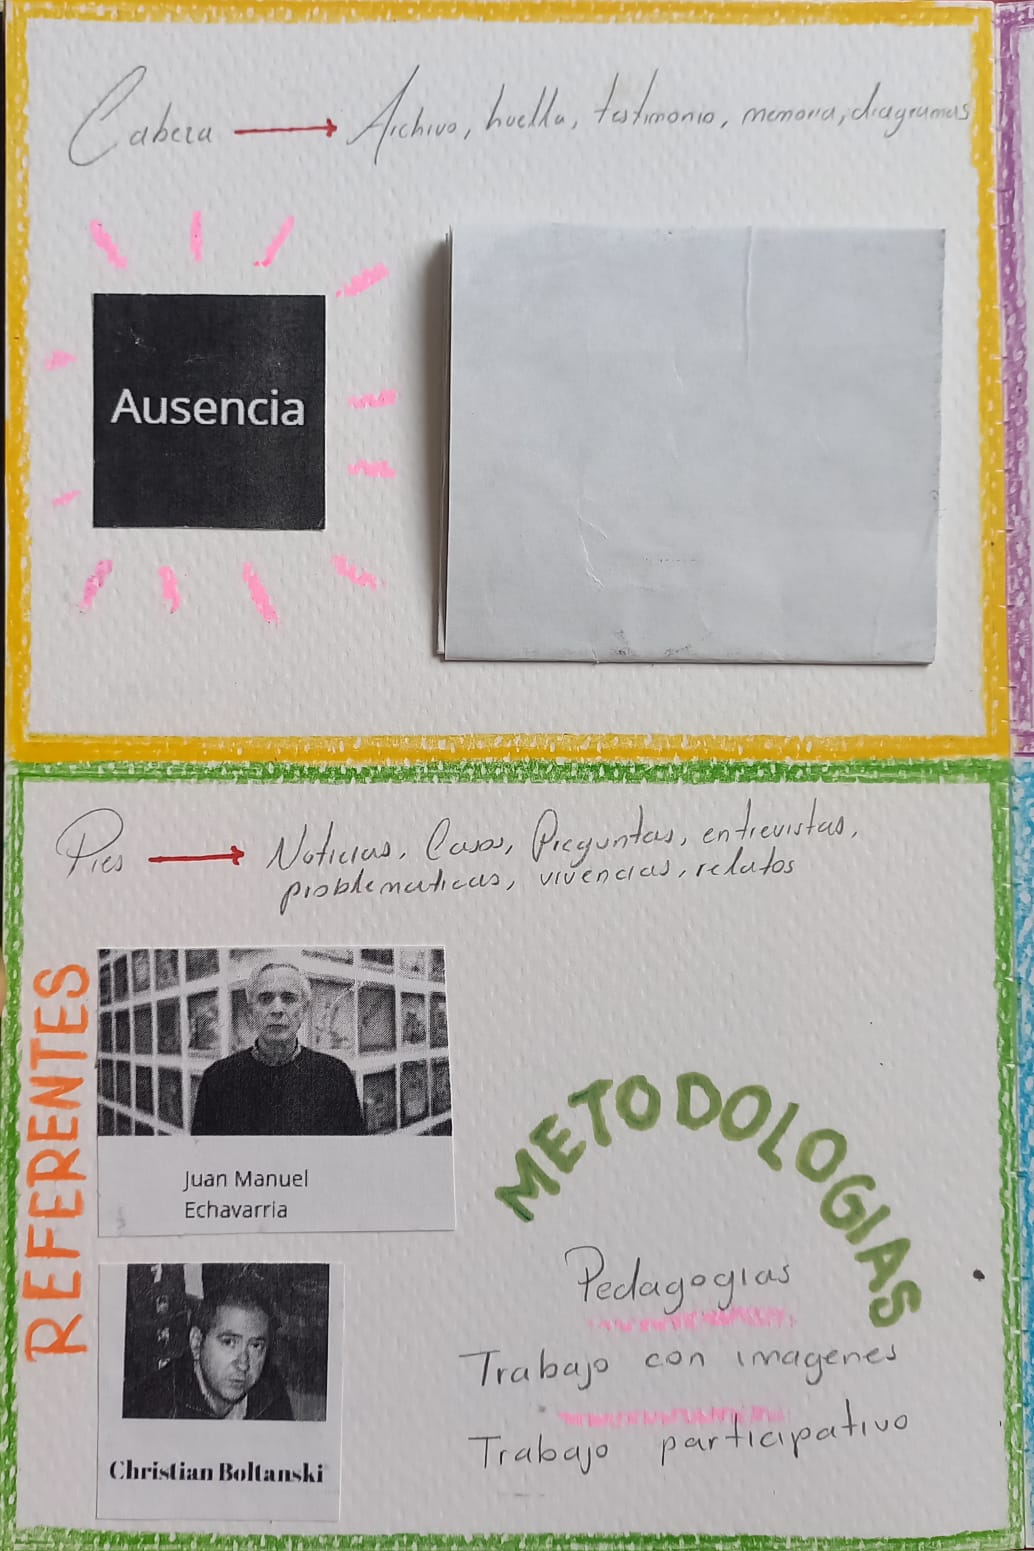 Cabeza → Archivo, huella, testimonio, memoria, diagramas
Ausencia
Pies → Noticias, Casos, Preguntas, entrevistas,
problematicas, vivencias, relatos
REFERENTES
Juan Manuel
Echavarria
Christian Boltanski
METODOLOGIAS
Pedagogias
Trabajo con imagenes
Trabajo participativo